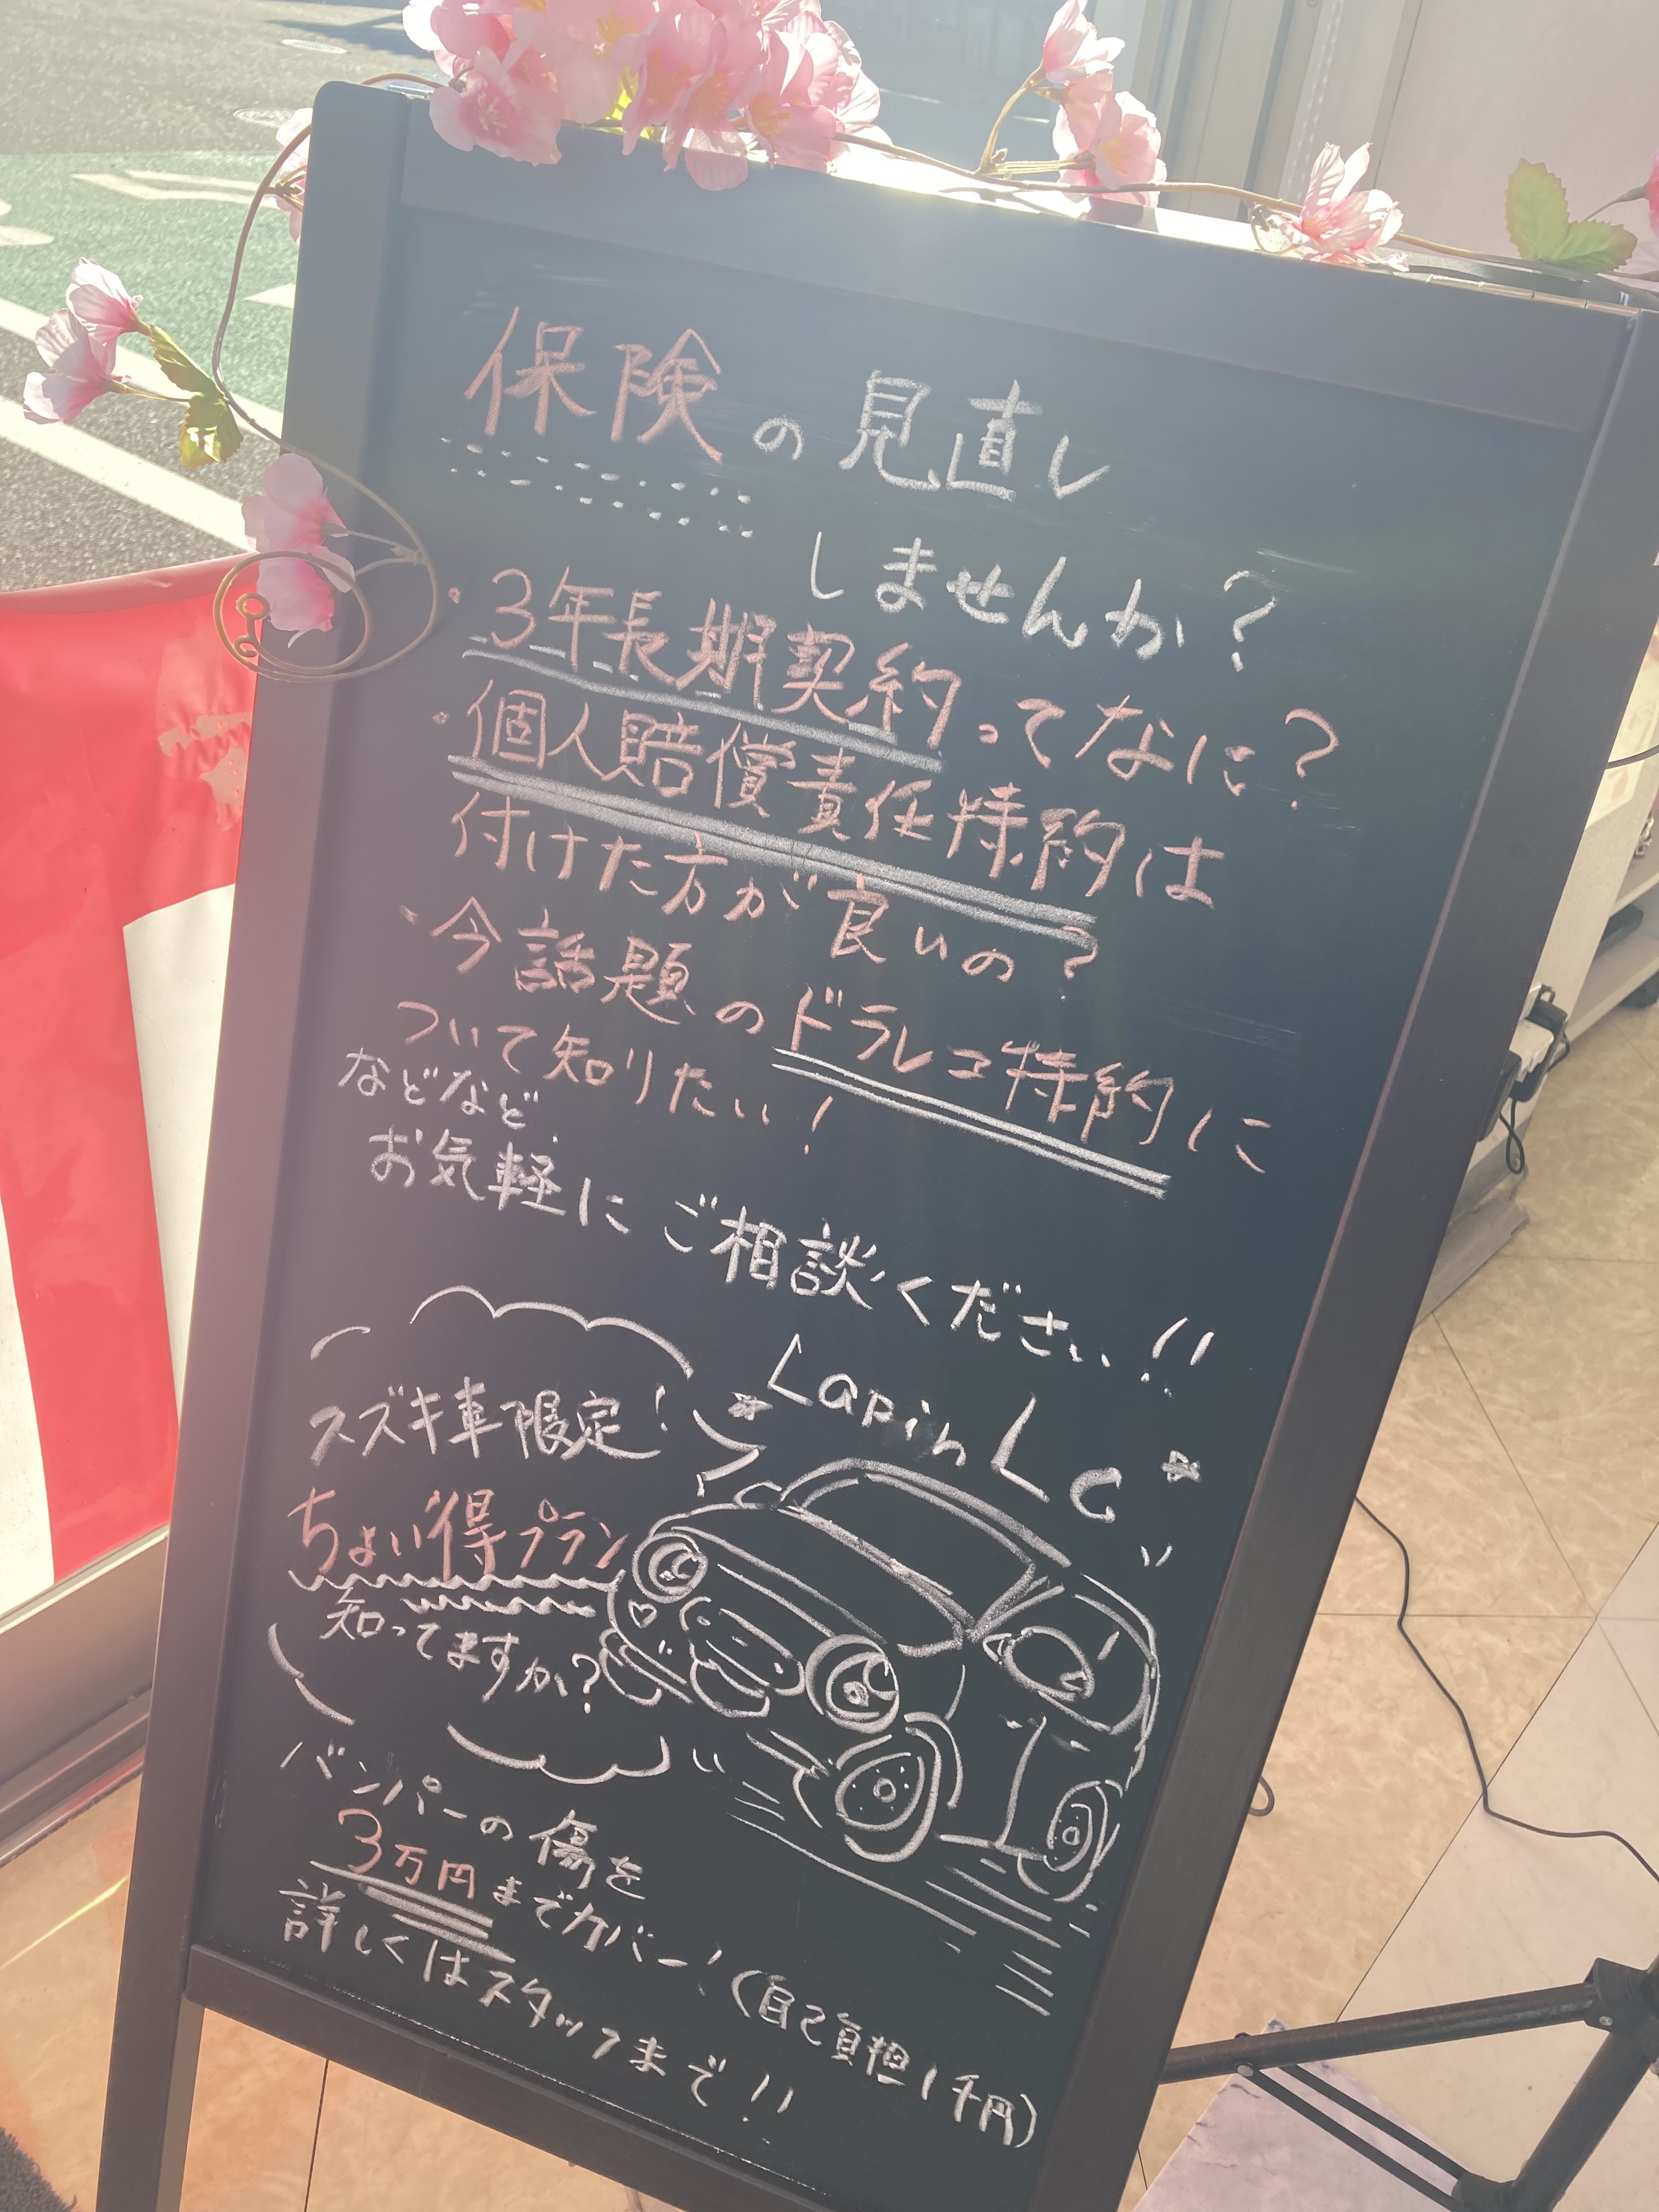 保険の見直し
しませんか?
・3年長期契約ってなに?
・個人賠償責任特約は
付けた方が良いの?
・今話題のドラレコ特約に
ついて知りたい!
などなど
お気軽にご相談ください!!
スズキ車限定!
ちょい得プラン
知ってますか?
Lapin LC
バンパーの傷を
3万円までカバー!(自己負担1千円)
詳しくはスタッフまで!!